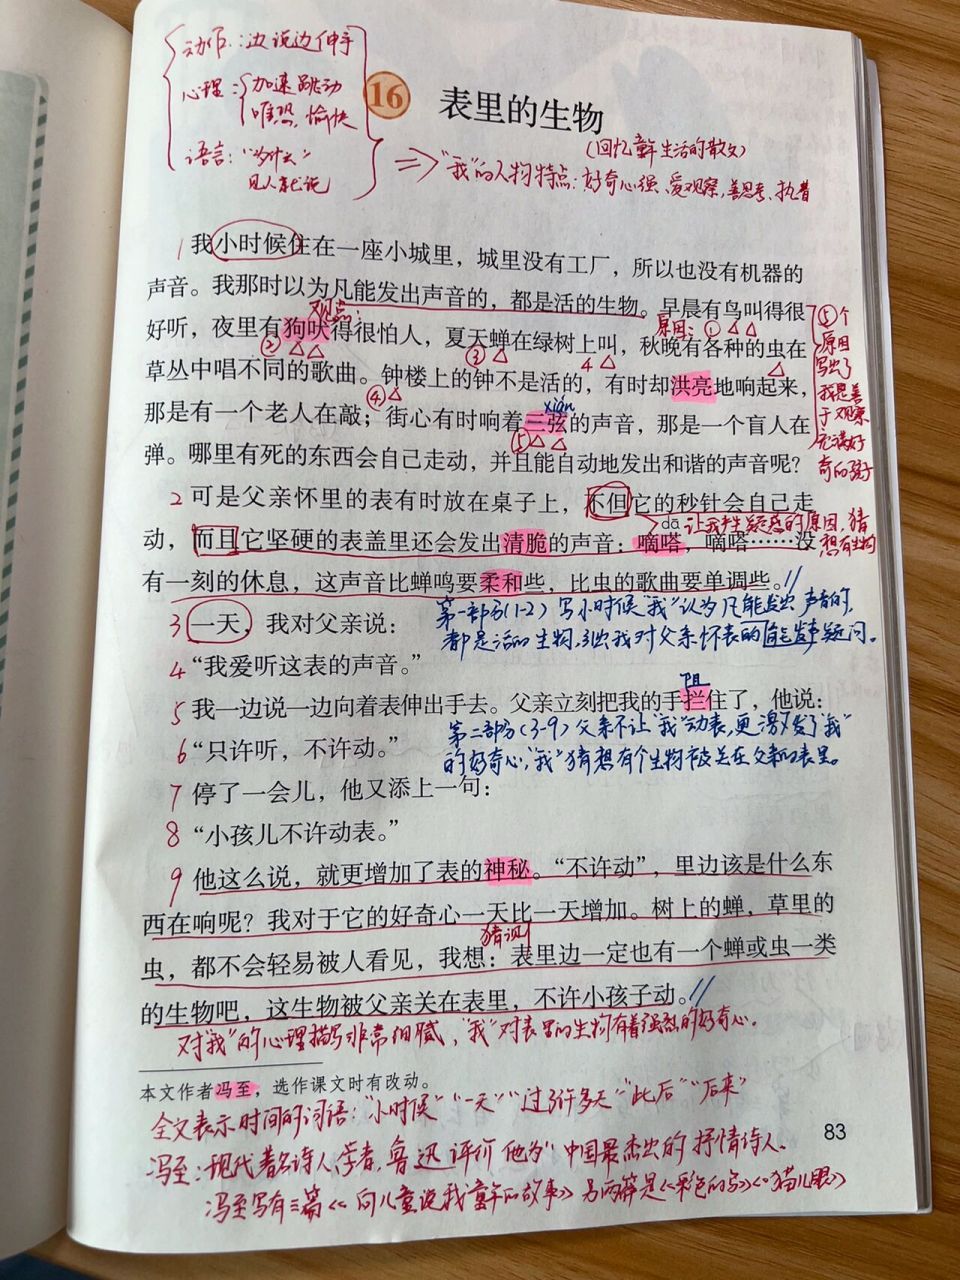 动作：边说边伸手
心理：加速跳动
唯恐、愉快
语言："为什么"
见人就说
16 表里的生物
(回忆童年生活的散文)
⇒"我"的人物特点：好奇心强、爱观察，善思考、执着
1 我小时候住在一座小城里，城里没有工厂，所以也没有机器的
声音。我那时以为凡能发出声音的，都是活的生物。早晨有鸟叫得很
观点：
原因：①
好听，夜里有狗吠得很怕人，夏天蝉在绿树上叫，秋晚有各种的虫在
② ③ 4
草丛中唱不同的歌曲。钟楼上的钟不是活的，有时却洪亮地响起来，
④
xián
那是有一个老人在敲；街心有时响着三弦的声音，那是一个盲人在
⑤
弹。哪里有死的东西会自己走动，并且能自动地发出和谐的声音呢？
⑤个
原因
写出了
我是善
于观察
充满好
奇的孩子
2 可是父亲怀里的表有时放在桌子上，不但它的秒针会自己走
dā 让我产生疑惑的原因，猜
想有生物
动，而且它坚硬的表盖里还会发出清脆的声音：嘀嗒，嘀嗒……没
有一刻的休息，这声音比蝉鸣要柔和些，比虫的歌曲要单调些。//
第一部分(1-2) 写小时候"我"认为凡能发出声音的，
都是活的生物，引出我对父亲怀表的能发声疑问。
3 一天，我对父亲说：
4 “我爱听这表的声音。”
阻
5 我一边说一边向着表伸出手去。父亲立刻把我的手拦住了，他说：
第二部分(3-9) 父亲不让"我"动表，更激发了"我"
的好奇心，"我"猜想有个生物被关在父亲的表里。
6 “只许听，不许动。”
7 停了一会儿，他又添上一句：
8 “小孩儿不许动表。”
9 他这么说，就更增加了表的神秘。“不许动”，里边该是什么东
西在响呢？我对于它的好奇心一天比一天增加。树上的蝉，草里的
猜测
虫，都不会轻易被人看见，我想：表里边一定也有一个蝉或虫一类
的生物吧，这生物被父亲关在表里，不许小孩子动。//
对"我"的心理描写非常细腻，"我"对表里的生物有着强烈的好奇心。
本文作者冯至，选作课文时有改动。
全文表示时间的词语："小时候""一天""过了许多天""此后""后来"
83
冯至：现代著名诗人，学者，鲁迅评价他为"中国最杰出的抒情诗人。
冯至写有三篇《向儿童说我童年的故事》另两篇是《彩色的鸟》《猫儿眼》